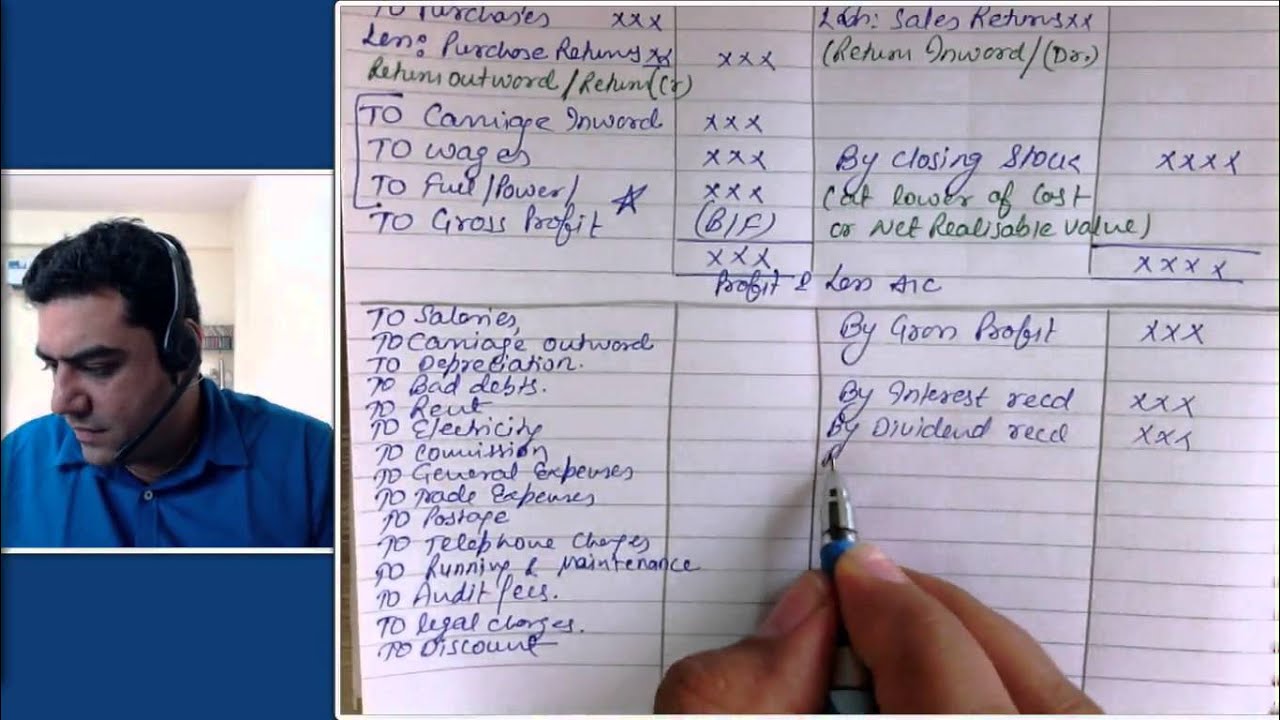 TO Purchases xxx
Less: Sales Returns xx
Less: Purchase Returns xx xxx
(Return Inword/(Dr.)
Return outword/Return(Cr)
TO Carriage Inword xxx
TO wages xxx
By Closing Stock xxxx
TO Fuel/Power/ xxx
(at lower of Cost
TO Gross Profit (B/F)
or Net Realisable value)
xxx
xxxx
Profit & Loss A/C
TO Salaries
By Gross Profit xxx
TO Carriage outword
TO Depreciation.
TO Bad debts.
By Interest recd xxx
TO Rent
TO Electricity
By Dividend recd xxx
TO Comission
TO General Expenses
TO Trade Expenses
TO Postage
TO Telephone Charges
TO Running & Maintenance
TO Audit fees.
TO legal charges.
TO Discount